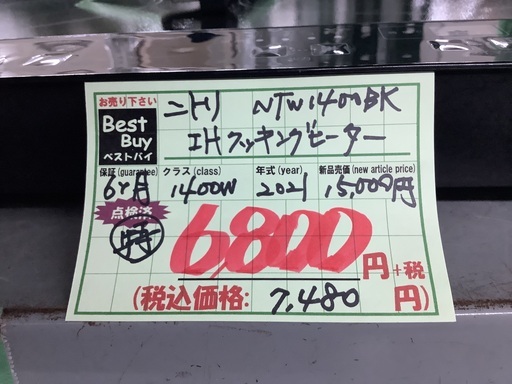 お売り下さい
Best Buy ベストバイ
ニトリ NTW1400BK
IHクッキングヒーター
保証(guarantee) クラス(class) 年式(year) 新品売価(new article price)
6ヶ月 1400W 2021 15,000円
点検済
特
6,800円+税
(税込価格: 7,480 円)